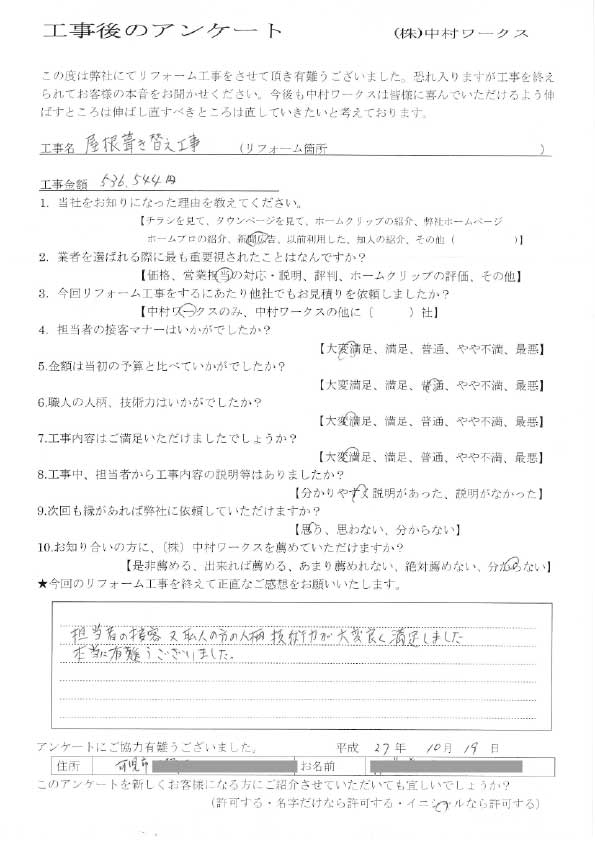 工事後のアンケート　(株)中村ワークス
この度は弊社にてリフォーム工事をさせて頂き有難うございました。恐れ入りますが工事を終え
られてお客様の本音をお聞かせください。今後も中村ワークスは皆様に喜んでいただけるよう伸
ばすところは伸ばし直すべきところは直していきたいと考えております。
工事名 屋根葺き替え工事 (リフォーム箇所 )
工事金額 536,544円
1. 当社をお知りになった理由を教えてください。
【チラシを見て、タウンページを見て、ホームクリップの紹介、弊社ホームページ
ホームプロの紹介、新聞広告、以前利用した、知人の紹介、その他（ ）】
2. 業者を選ばれる際に最も重要視されたことはなんですか？
【価格、営業担当の対応・説明、評判、ホームクリップの評価、その他】
3. 今回リフォーム工事をするにあたり他社でもお見積りを依頼しましたか？
【中村ワークスのみ、中村ワークスの他に〔 〕社】
4. 担当者の接客マナーはいかがでしたか？
【大変満足、満足、普通、やや不満、最悪】
5.金額は当初の予算と比べていかがでしたか？
【大変満足、満足、普通、やや不満、最悪】
6.職人の人柄、技術力はいかがでしたか？
【大変満足、満足、普通、やや不満、最悪】
7.工事内容はご満足いただけましたでしょうか？
【大変満足、満足、普通、やや不満、最悪】
8.工事中、担当者から工事内容の説明等はありましたか？
【分かりやすく説明があった、説明がなかった】
9.次回も縁があれば弊社に依頼していただけますか？
【思う、思わない、分からない】
10.お知り合いの方に、〔株〕中村ワークスを薦めていただけますか？
【是非薦める、出来れば薦める、あまり薦めれない、絶対薦めない、分からない】
★今回のリフォーム工事を終えて正直なご感想をお願いいたします。
担当者の接客 又 職人の方の人柄 技術力が大変良く満足しました
本当に有難うございました。
アンケートにご協力有難うございました。 平成 27年 10月 19日
住所 可児市 お名前
このアンケートを新しくお客様になる方にご紹介させていただいても宜しいでしょうか？
(許可する・名字だけなら許可する・イニシャルなら許可する)